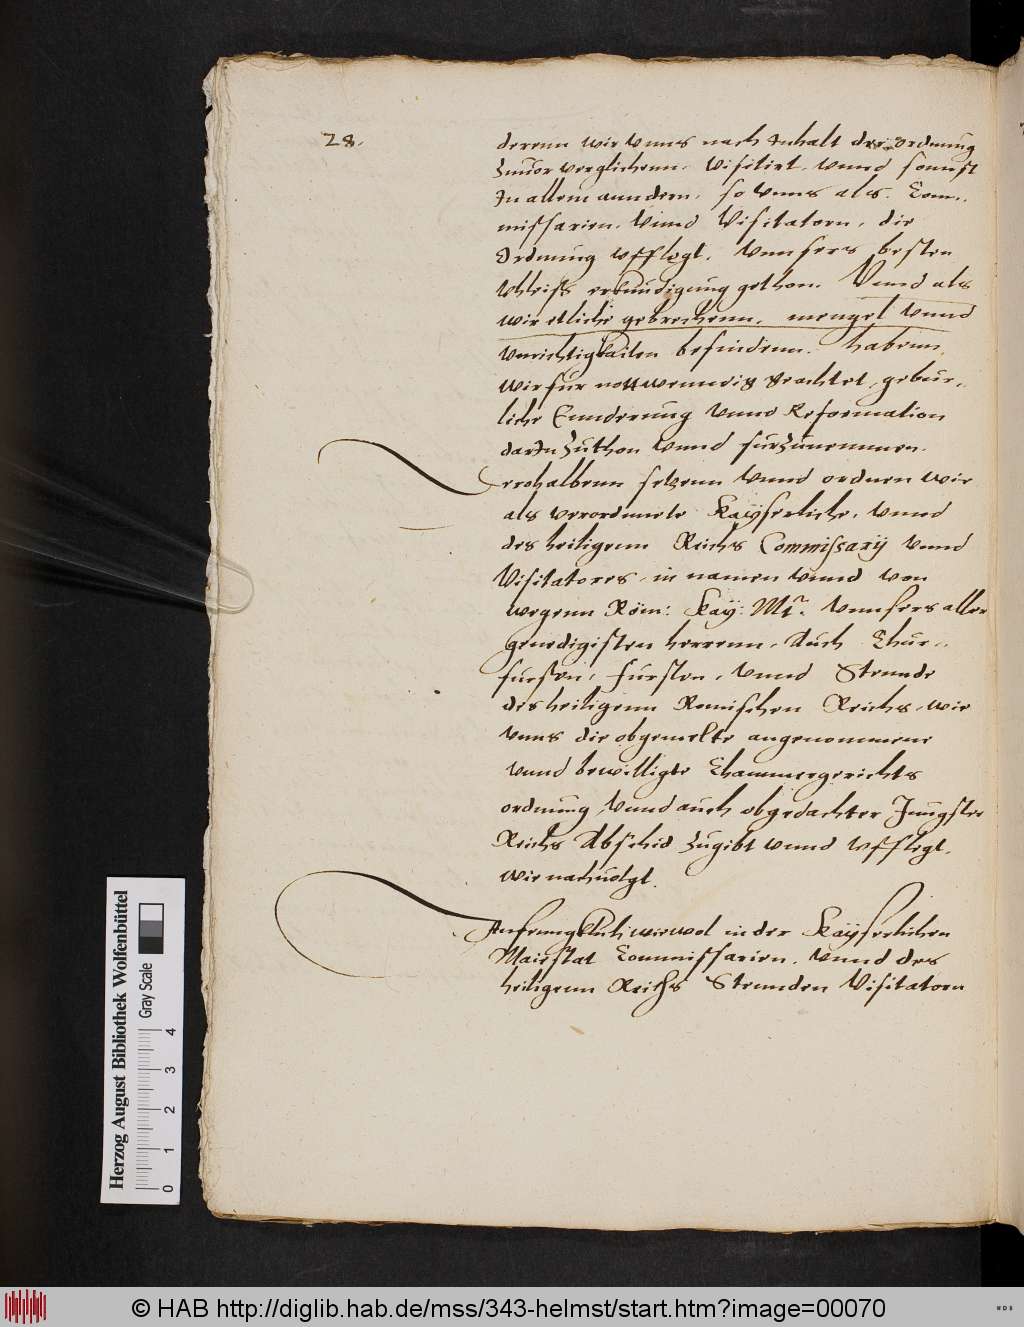 28.
derenn wir vnns nach Inhalt der ordnung
zuuor verglichenn, visitirt, vnnd sonnst
In allem anndern, so vnns als Com„
missarien, vnnd Visitatorn, die
Ordnung vfflegt, vnnsers besten
Vhleiss erkundigung gethon. Vnnd als
wir etliche gebrechenn, mengel vnnd
vnrichtigkaiten befindenn, habenn
wir fur nottwenndig geachtet, gebur„
liche Ennderung vnnd Reformation
darIn zuthon vnnd furzunemmen.
Derohalbenn setzenn vnnd ordnen wir
als verordnnete Kayserliche, vnnd
des heiligenn Reichs Commissarij vnnd
Visitatores, in namen vnnd von
wegenn Röm: Kay: Mt. vnnsers aller
genedigisten herrenn, Auch Chur„
fursten, fursten, vnnd Stennde
des heiligenn Romischen Reichs, wie
vnns die obgemelte angenommene
vnnd bewilligte Chammergerichts
ordnung, vnnd auch obgedachter Jungster
Reichs Abschid zugibt vnnd vfflegt,
wie nachuolgt.
Anfenngklich wiewol in der Kayserlichen
Maiestat Commissarien, vnnd des
heiligenn Reichs Stennden Visitatorn
Herzog August Bibliothek Wolfenbüttel
Gray Scale
0 1 2 3 4
© HAB http://diglib.hab.de/mss/343-helmst/start.htm?image=00070